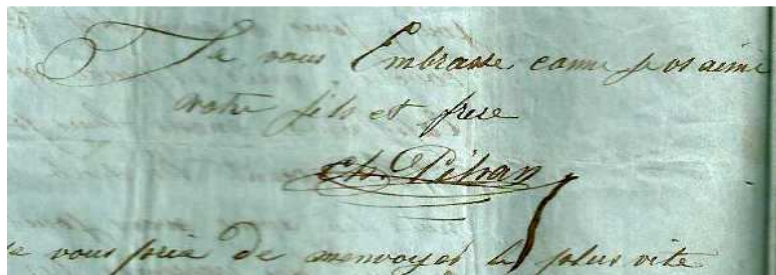 Je vous Embrasse come je vs aime
votre fils et frere
Ch. Pihan
e vous prie de menvoyer le plus vite